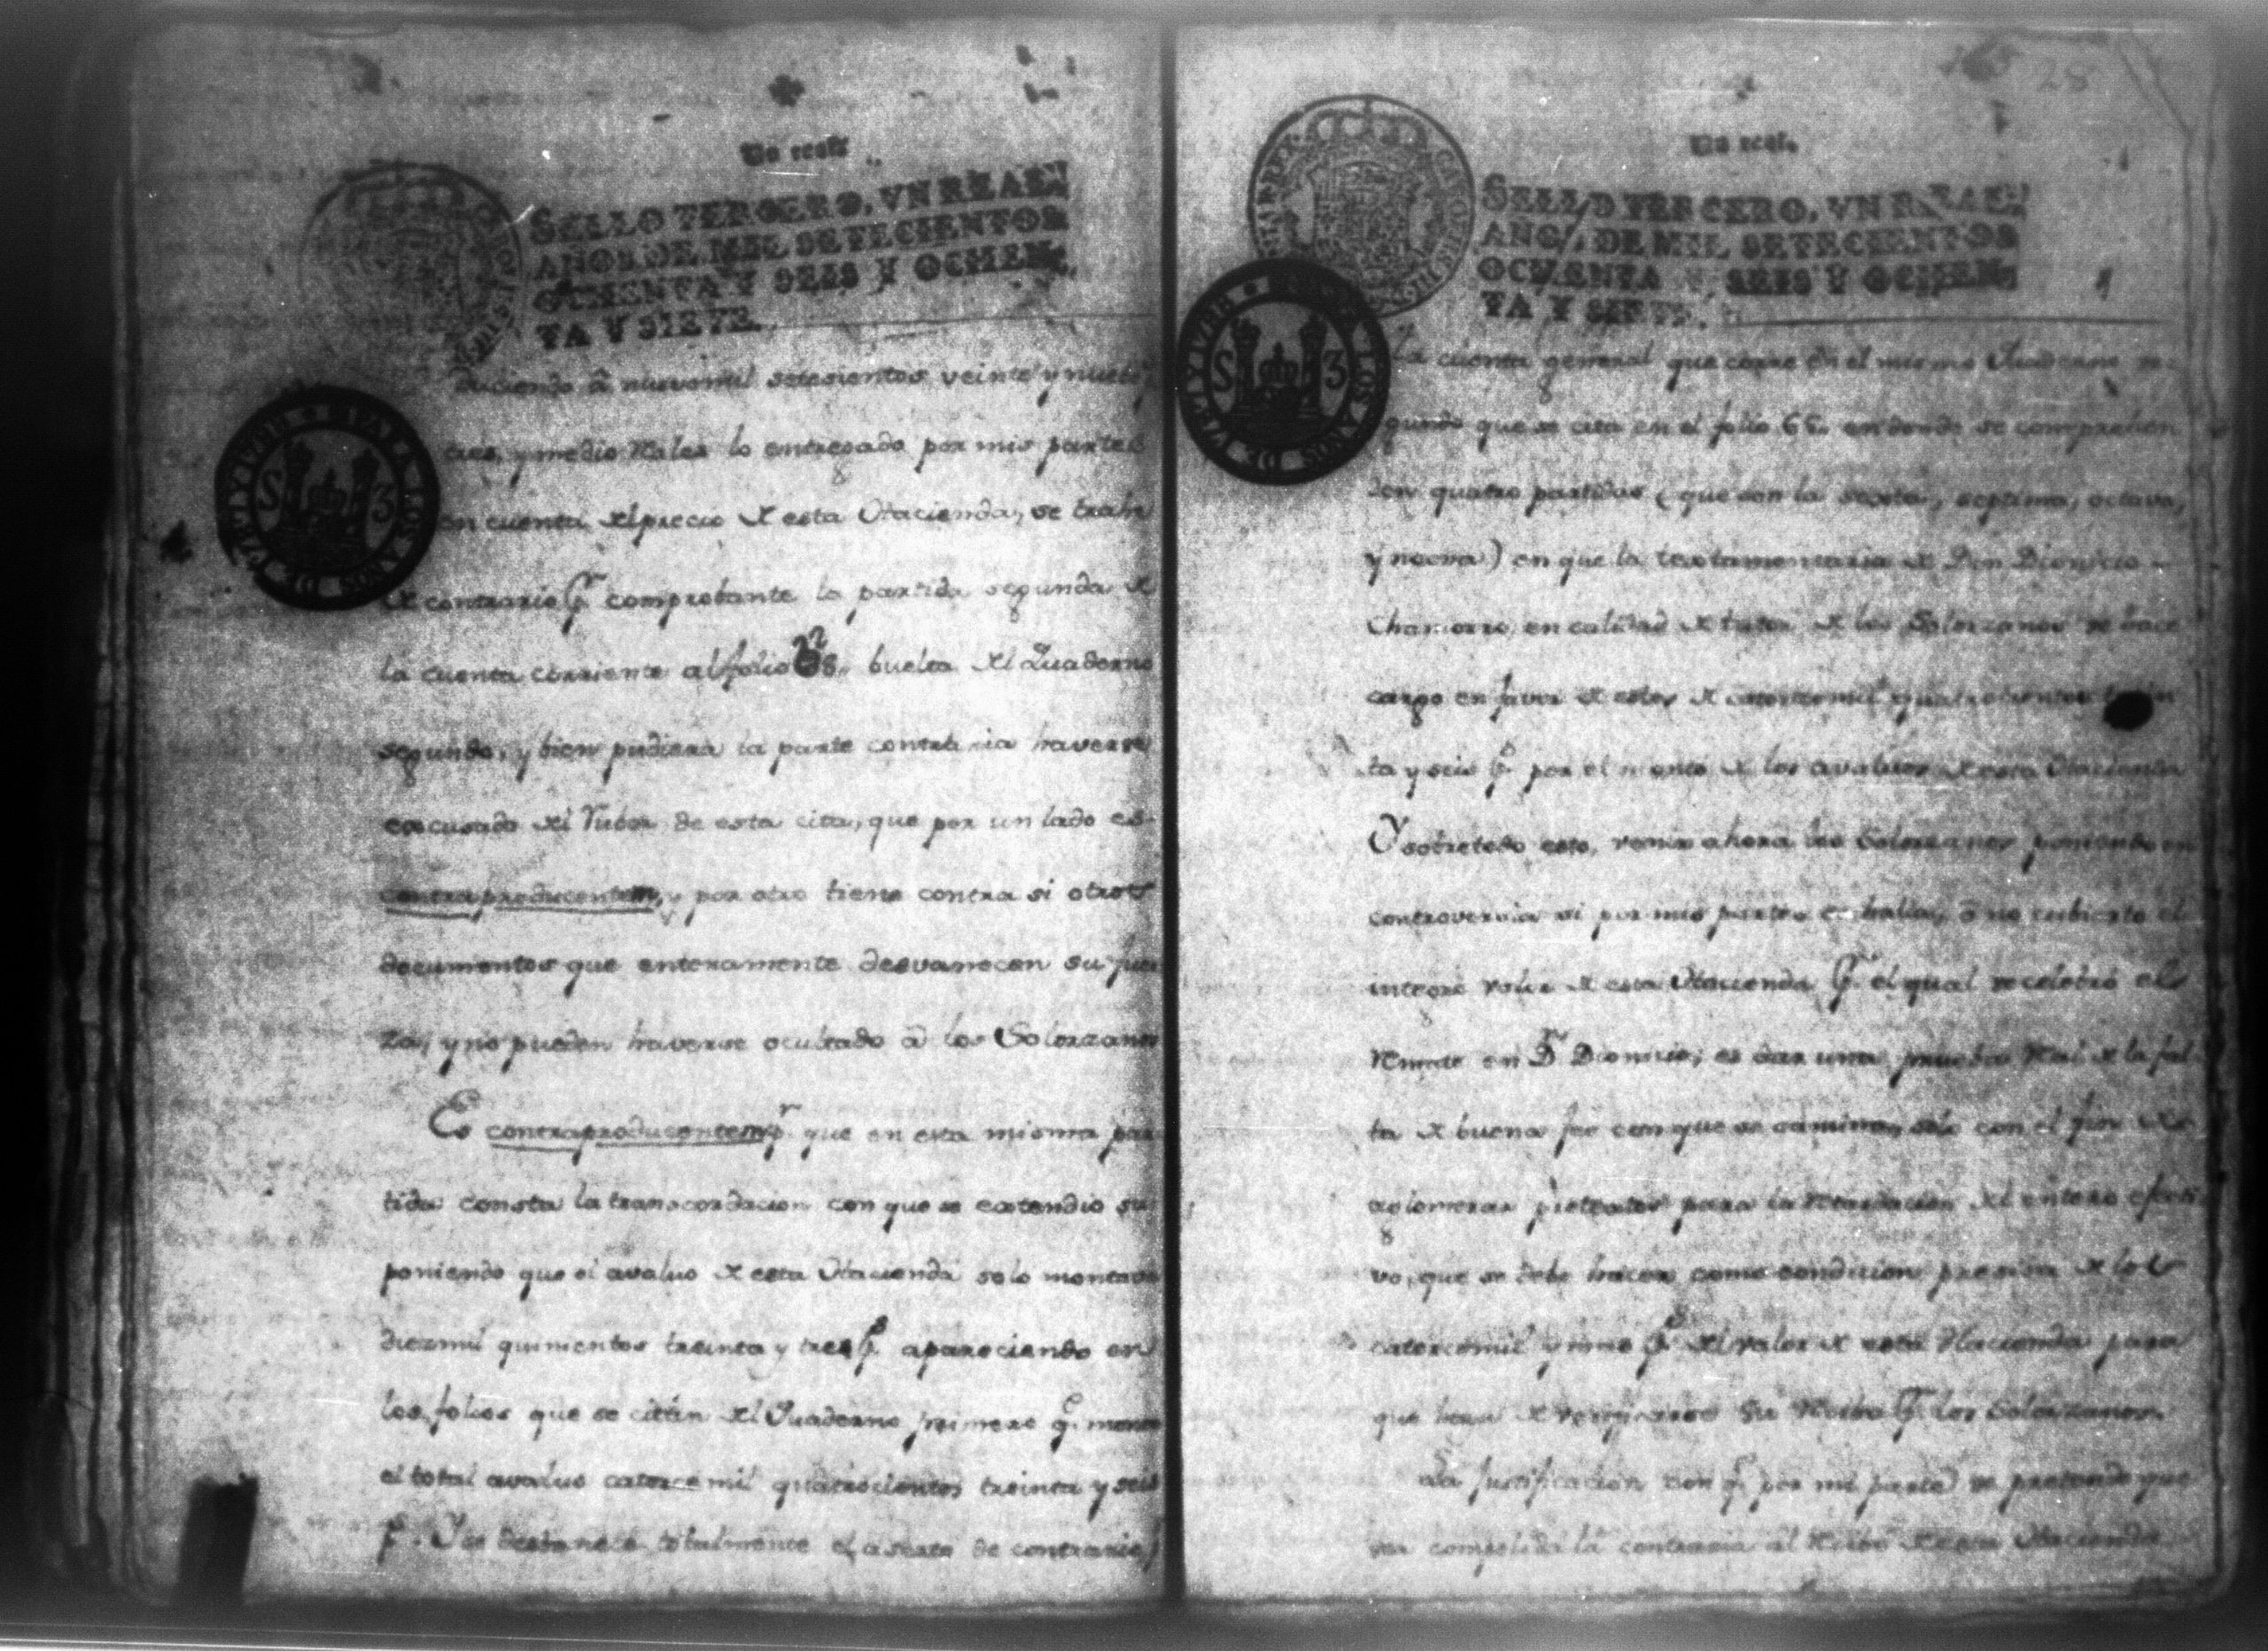 Un real.
SELLO TERCERO, VN REAL, EN
AÑOS DE MIL SETECIENTOS
OCHENTA Y SEIS Y OCHEN-
TA Y SIETE.
PARA LOS AÑOS DE
S 3
duciendo â nuevemil setesientos veinte y nueve
tres, y medio Reales lo entregado por mis partes
en cuenta del precio de esta Hacienda, se trahe
de contrario pr. comprobante la partida segunda de
la cuenta corriente al folio buelta del Quaderno
segundo, y bien pudiera la parte contraria haverse
escusado del Tutor de esta cita, que por un lado es
contraproducentem, y por otro tiene contra si otros
documentos que enteramente desvanecen su fuer
za, y no pueden haverse ocultado â los Solorzanos
Es contraproducentem pr. que en esta misma par
tida consta la transcordacion con que se extendio su
poniendo que el avaluo de esta Hacienda solo montava
diezmil quinientos treinta y tres ps. apareciendo en
los folios que se citan del Quaderno primero qe. monta
el total avaluo catorce mil quatrocientos treinta y seis
ps. Y se desbanece totalmente el aserto de contrario
28
Un real.
SELLO TERCERO, VN REAL, EN
AÑOS DE MIL SETECIENTOS
OCHENTA Y SEIS Y OCHEN-
TA Y SIETE.
PARA LOS AÑOS DE
S 3
la cuenta general que corre en el mismo Quaderno se
gundo que se cita en el folio 66. en donde se comprehen
den quatro partidas (que son la sexta, septima, octava,
y nona) en que la testamentaria de Don Dionicio
Chamorro, en calidad de tutor de los Solorzanos se hace
cargo en favor de estos de catorcemil quatrocientos trein
ta y seis ps. por el monto de los avaluos de esta Hacienda
Y sobretodo esto, venir ahora los Solorzanos poniendo en
controversia si por mis partes se halla, ô no cubierto el
integro valor de esta Hacienda pr. el qual se celebró el
Remate en Dn. Dionicio, es dar una prueba Real de la fal
ta de buena fee con que se camina, solo con el fin de
aglomerar pretextos para la retardacion del entero efecti
vo, que se debe hacer como condicion precisa de los
catorcemil y mas ps. del valor de esta Hacienda para
que haia de verificarse su Recibo pr. los Solorzanos.
La justificacion con qe. por mi parte se pretende que
sea compelida la contraria al Recibo de esta Hacienda